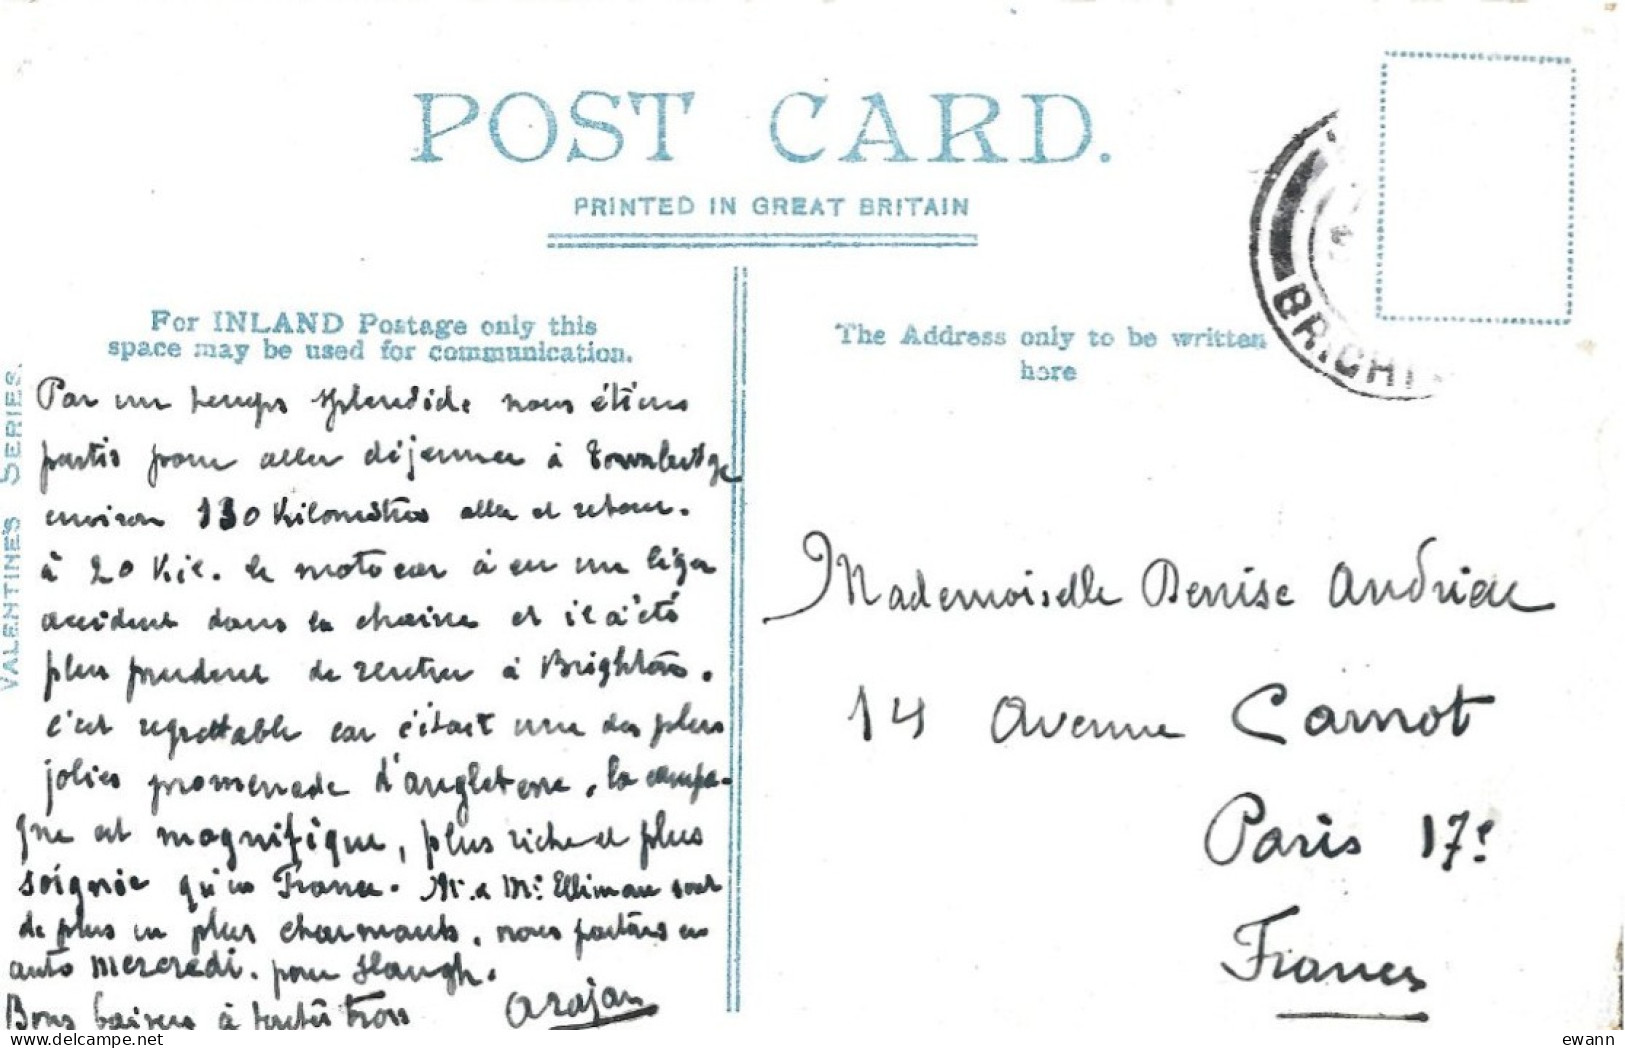 POST CARD.
PRINTED IN GREAT BRITAIN
For INLAND Postage only this
space may be used for communication.
The Address only to be written
here
VALENTINE'S SERIES.
BRIGHT
Par un temps splendide nous étions
partis pour aller déjeuner à
environ 130 Kilomètres aller et retour.
à 20 Kil. le motocar à eu un léger
accident dans la chaine et il a été
plus prudent de rentrer à Brighton.
C'est regrettable car c'était une des plus
jolies promenade d'angleterre. la campa-
gne est magnifique, plus riche et plus
soignée qu'en France. Mr. & Me. Elliman sont
de plus en plus charmants. nous partons en
auto mercredi. pour Slough.
Bons baisers à toutes trois
Mademoiselle Denise
14 Avenue Carnot
Paris 17e
France
ewann